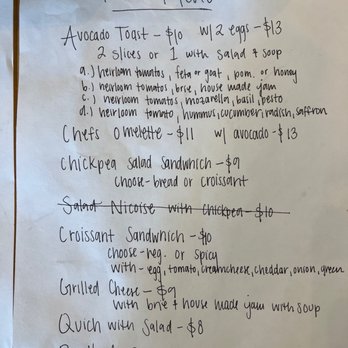 Avocado Toast - $10 w/ 2 eggs - $13
2 slices or 1 with salad & soup
a.) heirloom tomatos, feta or goat, pom. or honey
b.) heirloom tomatos, brie, house made jam
c.) heirloom tomatos, mozarella, basil, pesto
d.) heirloom tomato, hummus, cucumber, radish, saffron
Chefs Omelette - $11 w/ avocado - $13
Chickpea Salad Sandwhich - $9
choose - bread or croissant
Salad Nicoise with chickpea - $10
Croissant Sandwhich - $10
choose - reg. or spicy
with - egg, tomato, creamcheese, cheddar, onion, green
Grilled Cheese - $9
with brie & house made jam with soup
Quich with Salad - $8